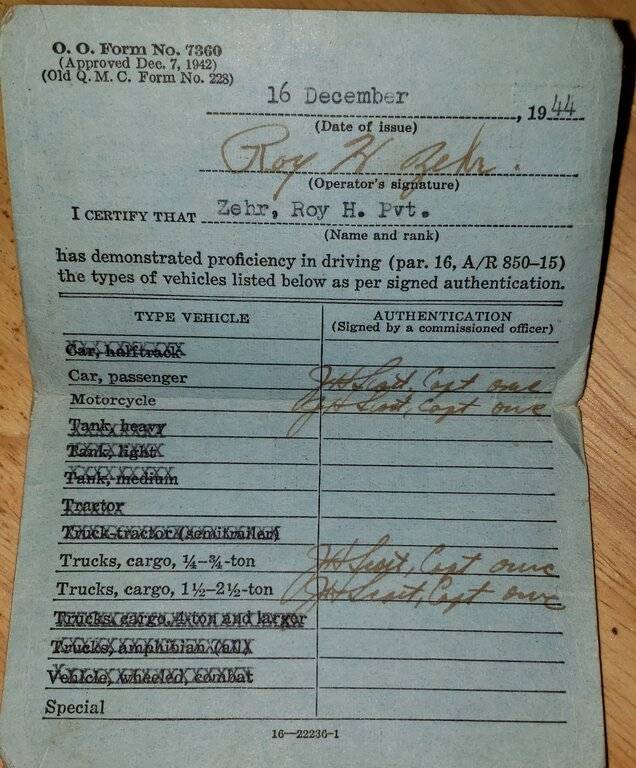 O. O. Form No. 7360
(Approved Dec. 7, 1942)
(Old Q. M. C. Form No. 228)
16 December, 1944
(Date of issue)
Roy H Zehr.
(Operator's signature)
I CERTIFY THAT Zehr, Roy H. Pvt.
(Name and rank)
has demonstrated proficiency in driving (par. 16, A/R 850–15)
the types of vehicles listed below as per signed authentication.
TYPE VEHICLE AUTHENTICATION
(Signed by a commissioned officer)
Car, halftrack
Car, passenger Capt
Motorcycle Capt
Tank, heavy
Tank, light
Tank, medium
Tractor
Truck-tractor (semitrailer)
Trucks, cargo, ¼–¾-ton Capt
Trucks, cargo, 1½–2½-ton Capt
Trucks, cargo, 4-ton and larger
Trucks, amphibian (all)
Vehicle, wheeled, combat
Special
16—22236-1